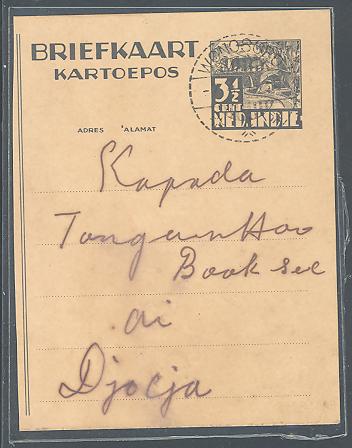 BRIEFKAART
KARTOEPOS
3½
CENT
NED.INDIE
ADRES 'ALAMAT
Kapada
Book sel
di
Djocja